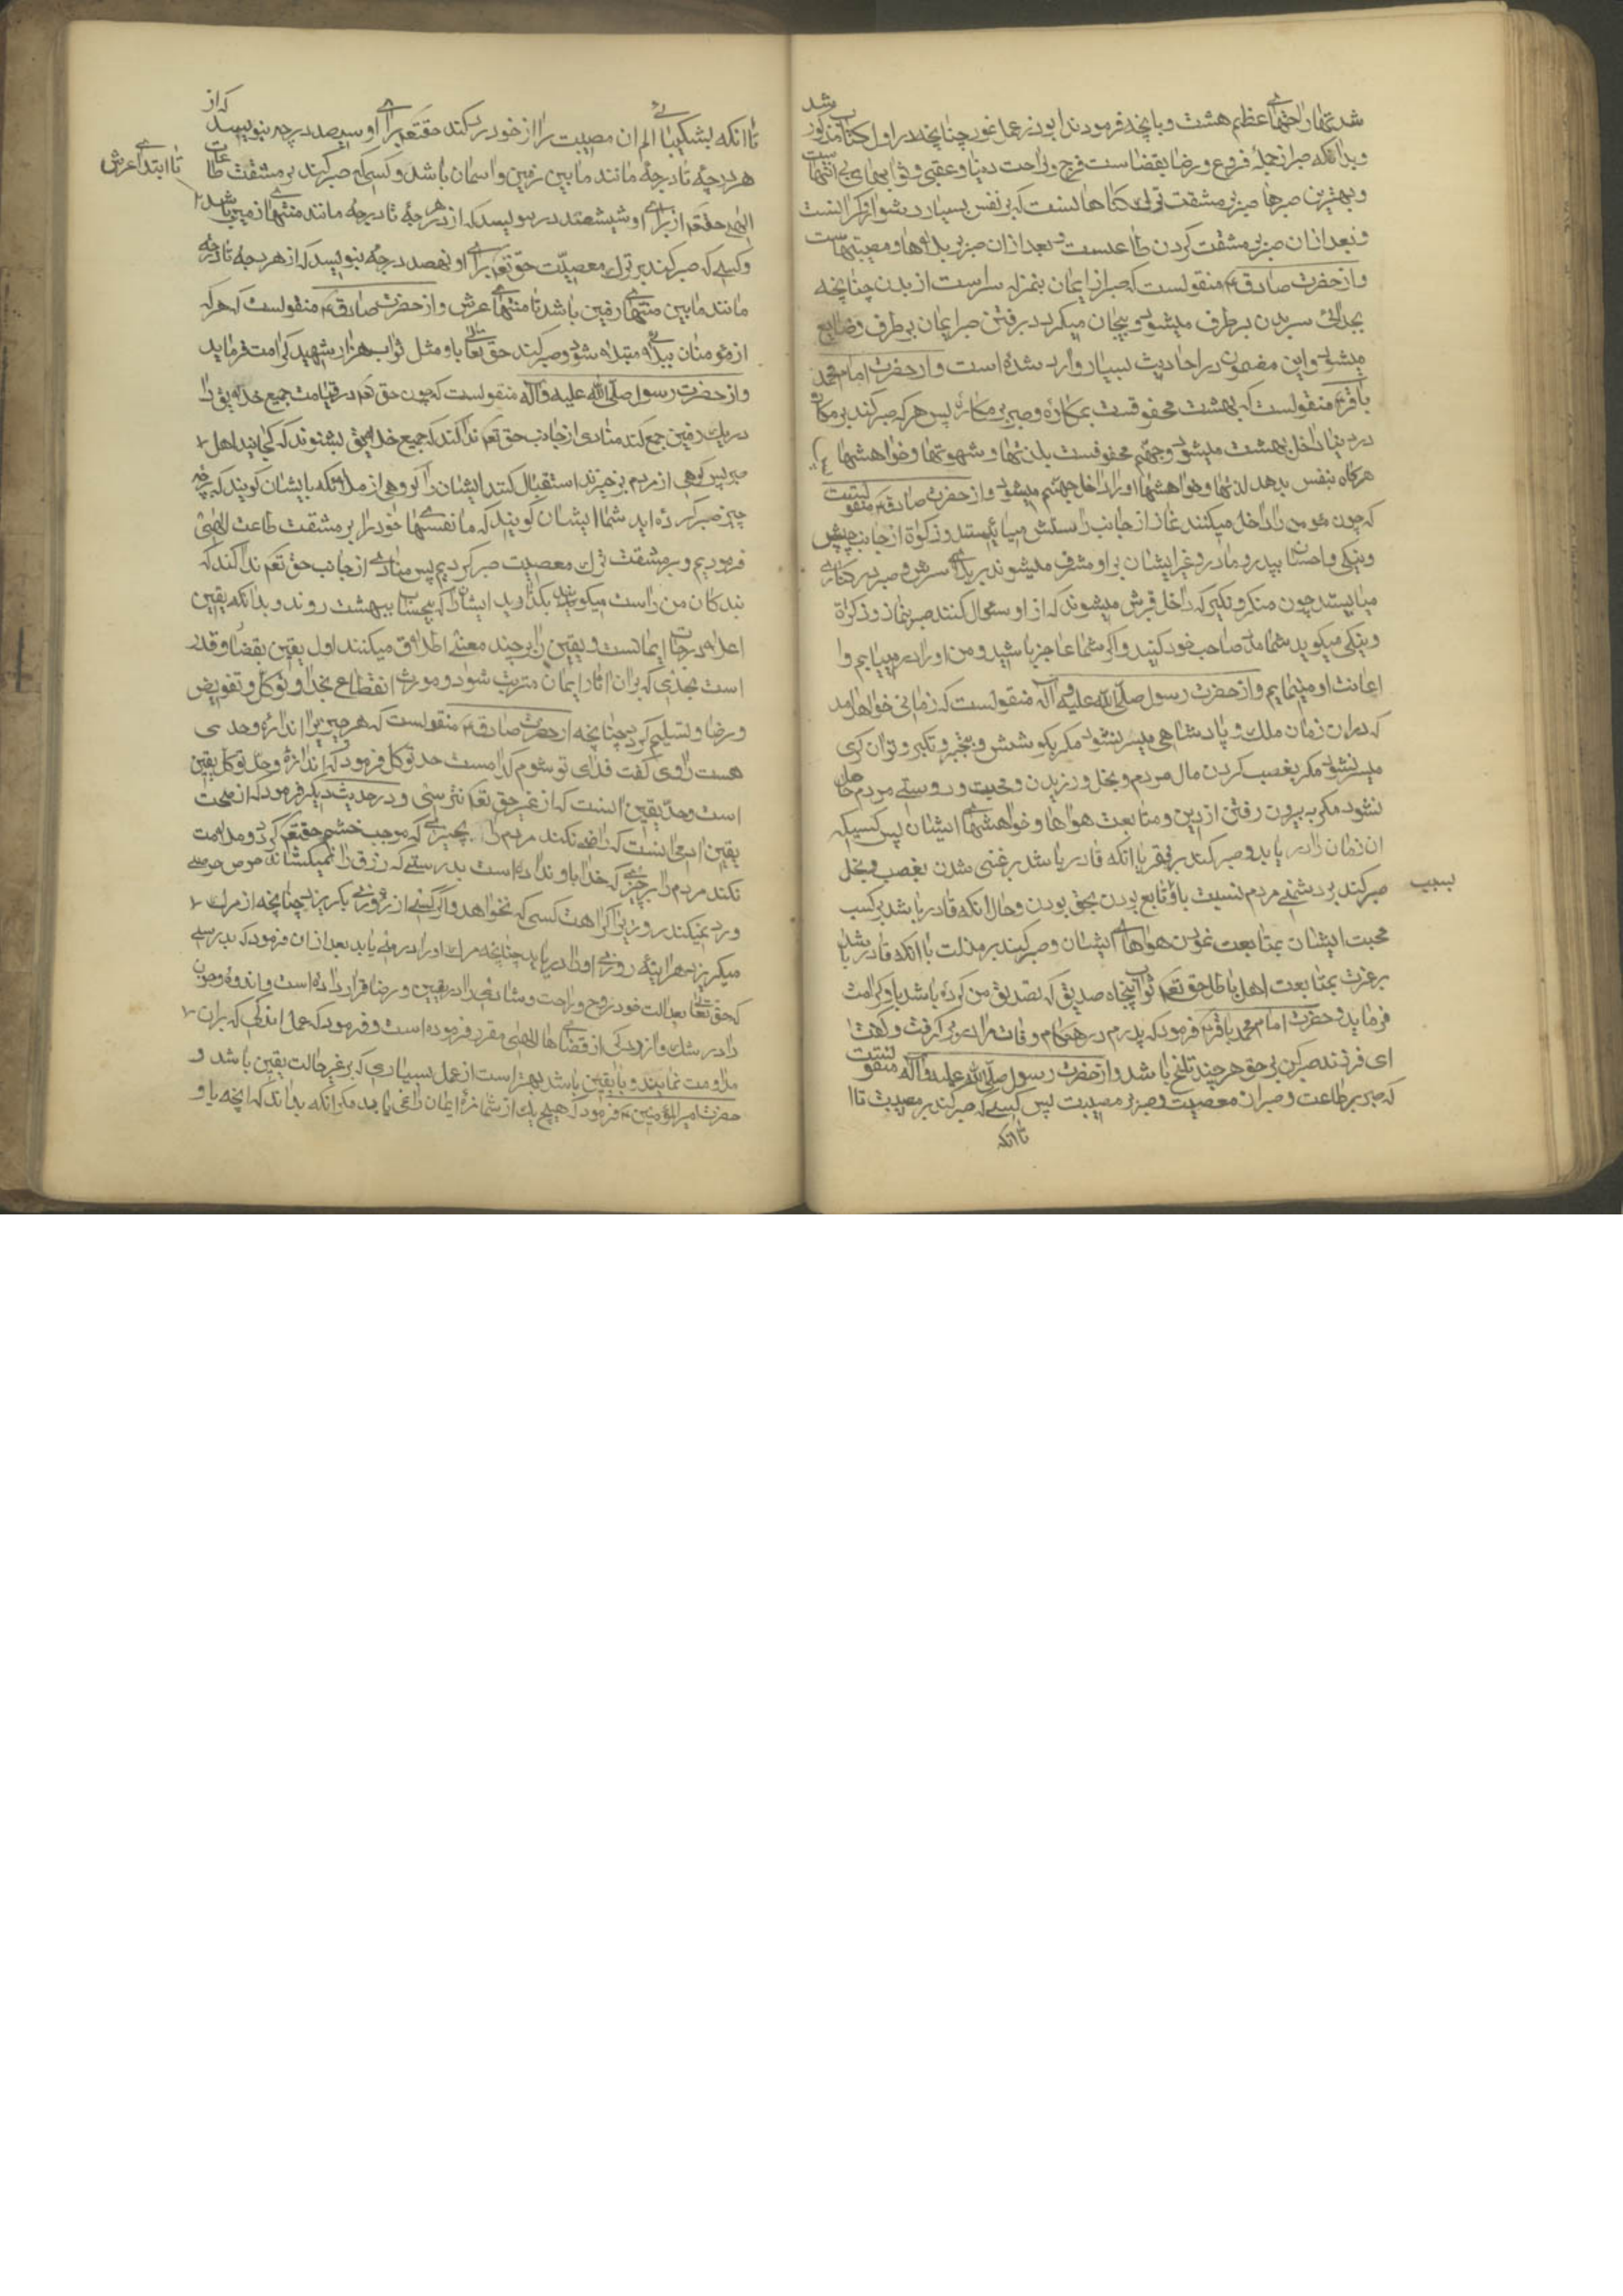 شد تمهار احتهای عظیم هشت و بانچه فرمودند ابوذر عمل نمود چنانچه در اول کتاب مذکور شد
وبدانکه صبر از جملهٔ فروع و رضا بقضاست فرج و راحت دنیا و عقبی و ثوابهای بی انتهاست
وبهترین صبرها صبر بر مشقت ترک کناهانست که بر نفس بسیار دشوار و کرانست
وبعد ازان صبر بر مشقت کردن طاعتست و بعد ازان صبر بر بلاها و مصیبتهاست
واز حضرت صادق ع منقولست که صبر از ایمان بمنزله سراست از بدن چنانچه
بجدائی سر بدن بر طرف میشود و بیجان میکردد برفتن صبر ایمان بر طرف و ضایع
میشود و این مضمون در احادیث بسیار وارد شده است و از حضرت امام محمد
باقر ع منقولست که بهشت محفوفست بمکاره و صبر بر مکاره پس هر که صبر کند بر مکاره
در دنیا داخل بهشت میشود و جهنم محفوفست بلذتها و شهوتها و خواهشها
هرکاه بنفس بدهد لذتها و خواهشها او را داخل جهنم میشود و از حضرت صادق ع منقولست
که چون مؤمن را داخل میکنند نماز از جانب راستش میایستد و زکوة از جانب چپش
ونیکی و احسان بپدر و مادر و غیر ایشان بر او مشرف میشوند بر بالای سرش و صبر در کناری
میایستد چون منکر و نکیر که داخل قبرش میشوند که از او سؤال کنند صبر بنماز و زکوة
ونیکی میکوید شما مدد صاحب خود کنید و اکر شما عاجز باشید من او را در میابم و
اعانت او مینمایم و از حضرت رسول صلی الله علیه و آله منقولست که زمانی خواهد آمد
که در ان زمان ملک و پادشاهی میسر نشود مکر بکوشش و بجبر و تکبر و توانکری
میسر نشود مکر بغصب کردن مال مردم و بخل ورزیدن و محبت و دوستی مردم حاصل
نشود مکر به بیرون رفتن از دین و متابعت هواها و خواهشهای ایشان پس کسیکه
ان زمان را در یابد و صبر کند بر فقر با انکه قادر باشد بر غنی شدن بغصب و بخل
صبر کند بر دشمنی مردم نسبت باو تابع بودن بحق بودن و حال انکه قادر باشد بر کسب
بسبب
محبت ایشان بمتابعت نمودن هواهای ایشان و صبر کند بر مذلت با انکه قادر باشد
بر عزت بمتابعت اهل باطل حق تعم ثواب پنجاه صدیق که تصدیق من کرده باشد باو کرامت
فرماید و حضرت امام محمد باقر ع فرمود که پدرم در هنکام وفات مرا در بر کرفت و کفت
ای فرزند صبر کن بر حق هر چند تلخ باشد و از حضرت رسول صلی الله علیه و آله منقولست
که صبر بر طاعت و صبر از معصیت و صبر بر مصیبت پس کسی که صبر کند بر مصیبت تا
تا انکه
تا انکه بشکیبائی الم ان مصیبت را از خود رد کند حقتعم برای او سیصد درجه بنویسد که از
هر درجه تا درجهٔ مانند مابین زمین و اسمان باشد و کسی که صبر کند بر مشقت طاعات
الهی حقتعم از برای او ششصد درجه بنویسد که از هر درجهٔ تا درجه مانند منتهای زمین باشد
تا ابتدای عرش
وکسی که صبر کند بر ترک معصیت حق تعم برای او نهصد درجه بنویسد که از هر درجهٔ تا درجه
مانند مابین منتهای زمین باشد تا منتهای عرش و از حضرت صادق ع منقولست که هر که
از مؤمنان ببلائی مبتلا شود و صبر کند حق تعالی باو مثل ثواب هزار شهید کرامت فرماید
واز حضرت رسول صلی الله علیه و آله منقولست که چون حق تعم در قیامت جمیع خلایق را
در یک زمین جمع کند منادی از جانب حق تعم ندا کند که جمیع خلایق بشنوند که کجایند اهل
صبر پس کروهی از مردم برخیزند استقبال کنند ایشان را کروهی از ملائکه بایشان کویند که بر چه
چیز صبر کرده اید شما ایشان کویند که ما نفسهای خود را بر مشقت طاعت الهی
فرمودیم و بر مشقت ترک معصیت صبر کردیم پس منادی از جانب حق تعم ندا کند که
بندکان من راست میکویند بکذارید ایشان را که بیحساب ببهشت روند و بدانکه یقین
اعلا درجات ایمانست و یقین را بر چند معنی اطلاق میکنند اول یقین بقضا و قدر
است بحدی که بران اثار ایمان مترتب شود و مورث انقطاع بخدا و توکل و تفویض
و رضا و تسلیم کردد چنانچه از حضرت صادق ع منقولست که هر چیز را اندازه و حدی
هست راوی کفت فدای تو شوم کدامست حد توکل فرمود که اندازه و حد توکل یقین
است و حد یقین انست که از غیر حق تعم نترسی و در حدیث دیکر فرمود که از صحت
یقین ادمی انست که راضی نکند مردم را بچیزی که موجب خشم حقتعم کردد و ملامت
نکند مردم را بر چیزی که خدا باو نداده است بدرستی که رزق را نمیکشاند حرص حریصی
و رد نمیکند روزی را کراهت کسی که نخواهد و اکر کسی از روزی بکریزد چنانچه از مرک
میکریزد هراینه روزی او را در یابد چنانچه مرک او را در می یابد بعد از ان فرمود که بدرستی
که حق تعالی بعدالت خود روح و راحت و شادی را در یقین و رضا قرار داده است و اندوه و حزن
را در شک و ازردکی از قضاهای الهی مقرر فرموده است و فرمود که عمل اندکی که بران
مداومت نمایند و با یقین باشد بهتر است از عمل بسیاری که بر غیر حالت یقین باشد و
حضرت امیرالمؤمنین ع فرمود که هیچ یک از شما مزهٔ ایمان را نمی یابد مکر انکه بداند که انچه باو